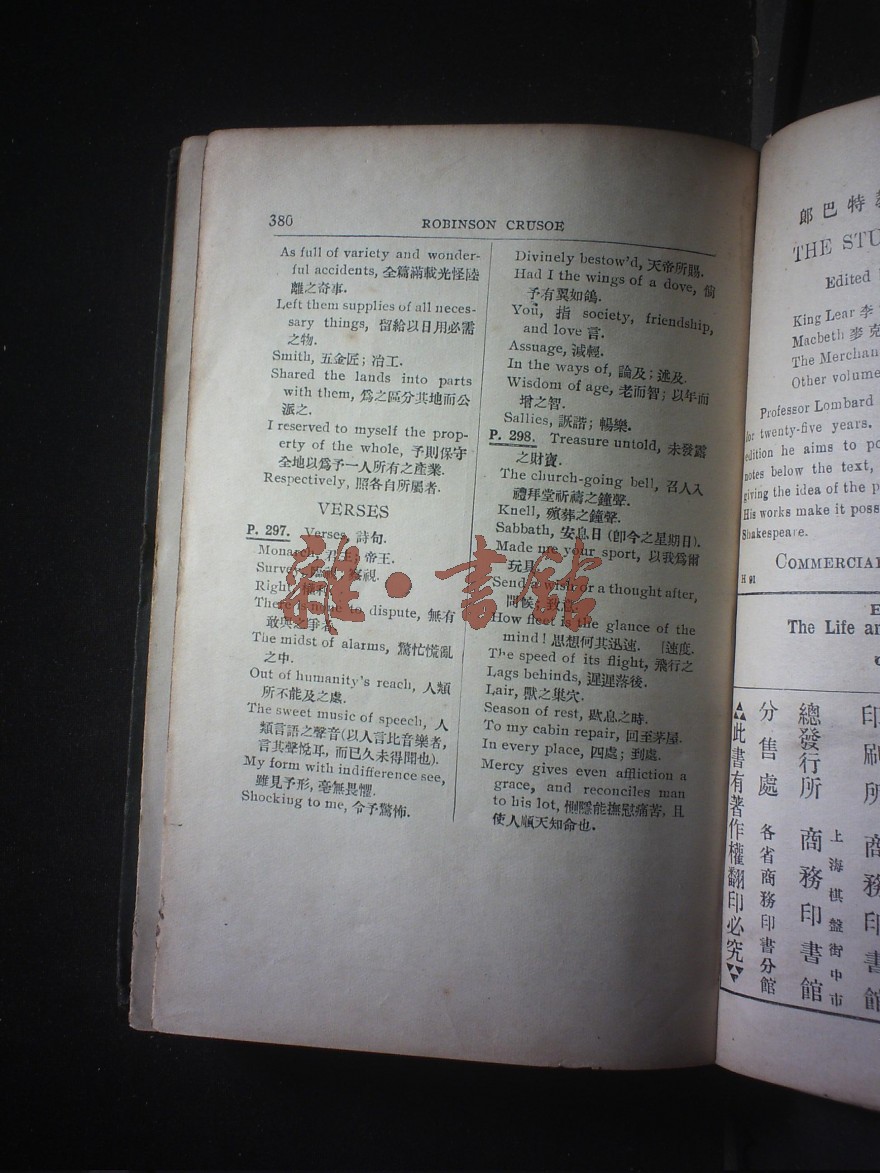 380
ROBINSON CRUSOE
As full of variety and wonder-
ful accidents, 全篇滿載光怪陸
離之奇事.
Left them supplies of all neces-
sary things, 留給以日用必需
之物.
Smith, 五金匠; 冶工.
Shared the lands into parts
with them, 爲之區分其地而公
派之.
I reserved to myself the prop-
erty of the whole, 予則保守
全地以爲予一人所有之產業.
Respectively, 照各自所屬者.
VERSES
P. 297. Verses, 詩句.
Monarch, 君主; 帝王.
Survey, 視.
Right, 權利.
There is none to dispute, 無有
敢與之爭者.
The midst of alarms, 驚忙慌亂
之中.
Out of humanity's reach, 人類
所不能及之處.
The sweet music of speech, 人
類言語之聲音(以人言比音樂者,
言其聲悅耳, 而已久未得聞也).
My form with indifference see,
雖見予形, 毫無畏懼.
Shocking to me, 令予驚怖.
Divinely bestow'd, 天帝所賜.
Had I the wings of a dove, 倘
予有翼如鴿.
You, 指 society, friendship,
and love 言.
Assuage, 減輕.
In the ways of, 論及; 述及.
Wisdom of age, 老而智; 以年而
增之智.
Sallies, 詼諧; 暢樂.
P. 298. Treasure untold, 未發露
之財寶.
The church-going bell, 召人入
禮拜堂祈禱之鐘聲.
Knell, 殯葬之鐘聲.
Sabbath, 安息日 (卽今之星期日).
Made me your sport, 以我爲爾
玩具.
Send a wish or a thought after,
問候; 致意.
How fleet is the glance of the
mind! 思想何其迅速. [速度.
The speed of its flight, 飛行之
Lags behinds, 遲遲落後.
Lair, 獸之巢穴.
Season of rest, 歇息之時.
To my cabin repair, 回至茅屋.
In every place, 四處; 到處.
Mercy gives even affliction a
grace, and reconciles man
to his lot, 惻隱能撫慰痛苦, 且
使人順天知命也.
雜·書館
郎巴特
THE STU
Edited
King Lear 李
Macbeth 麥克
The Merchan
Other volume
Professor Lombard
for twenty-five years.
edition he aims to po
notes below the text,
giving the idea of the p
His works make it poss
Shakespeare.
COMMERCIAL
H 91
E
The Life an
印刷所 商務印書館
總發行所 上海棋盤街中市 商務印書館
分售處 各省商務印書分館
此書有著作權翻印必究